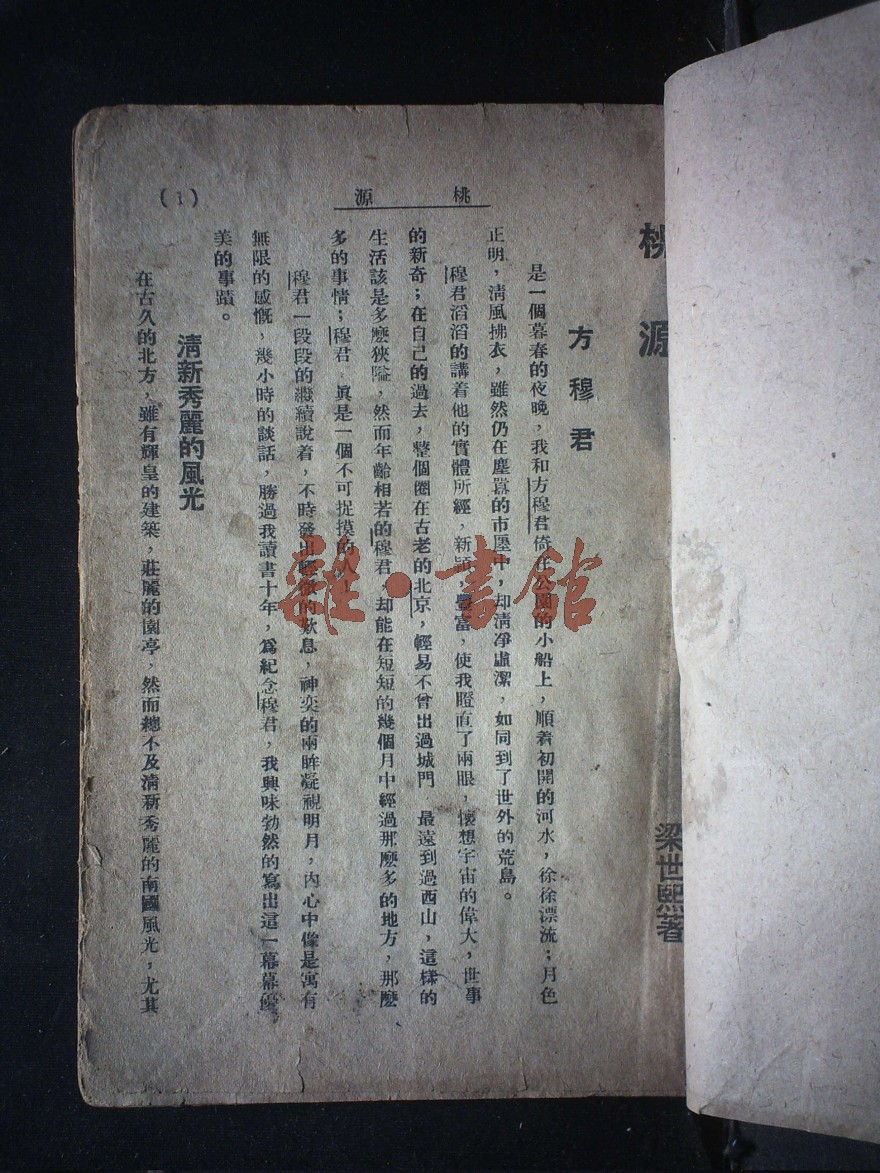 桃源
梁世熙著
方穆君
是一個暮春的夜晚，我和方穆君倚在公園的小船上，順着初開的河水，徐徐漂流；月色
正明，淸風拂衣，雖然仍在塵囂的市廛中，却淸凈虛潔，如同到了世外的荒島。
穆君滔滔的講着他的實體所經，新穎，豐富，使我瞪直了兩眼，懷想宇宙的偉大，世事
的新奇；在自己的過去，整個圈在古老的北京，輕易不曾出過城門 最遠到過西山，這樣的
生活該是多麼狹隘，然而年齡相若的穆君，却能在短短的幾個月中經過那麼多的地方，那麼
多的事情；穆君，眞是一個不可捉摸的人！
穆君一段段的繼續說着，不時發出的歎息，神奕的兩眸凝視明月，內心中像是寓有
無限的感慨，幾小時的談話，勝過我讀書十年，爲紀念穆君，我興味勃然的寫出這一幕幕優
美的事蹟。
淸新秀麗的風光
在古久的北方，雖有輝皇的建築，莊麗的園亭，然而總不及淸新秀麗的南國風光，尤其
桃源
(1)
雜·書館